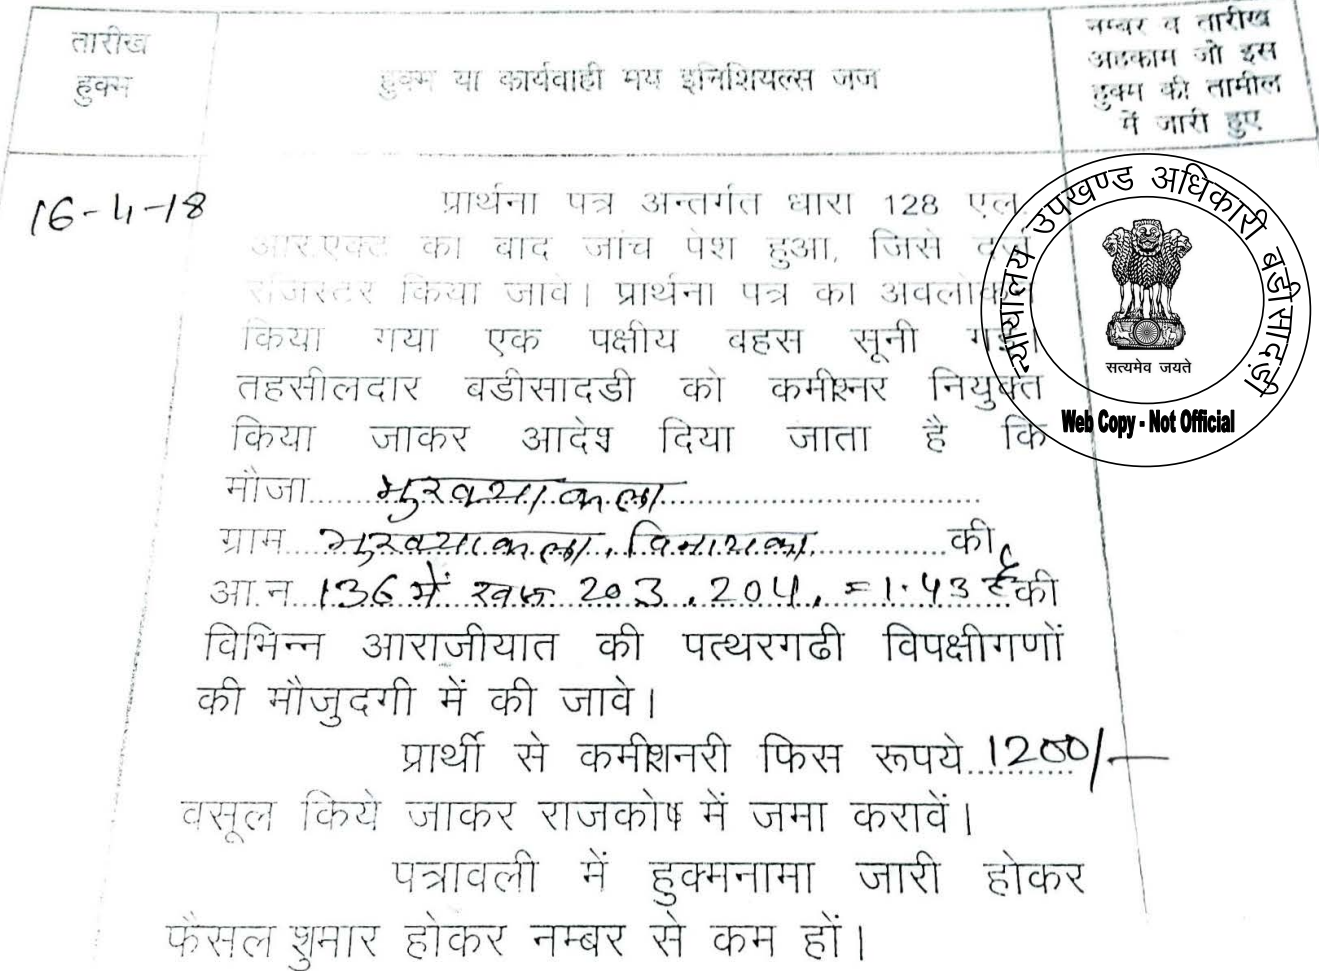 तारीख
हुक्म
हुक्म या कार्यवाही मय इनिशियल्स जज
नम्बर व तारीख
अहकाम जो इस
हुक्म की तामील
में जारी हुए
16-4-18
प्रार्थना पत्र अन्तर्गत धारा 128 एल.
आर.एक्ट का वाद जांच पेश हुआ, जिसे दर्ज
रजिस्टर किया जावे। प्रार्थना पत्र का अवलोकन
किया गया एक पक्षीय वहस सूनी गई।
तहसीलदार बडीसादडी को कमीश्नर नियुक्त
किया जाकर आदेश दिया जाता है कि
मौजा
ग्राम की
आ.न 136 में 203, 204, = 1.43 है की
विभिन्न आराजीयात की पत्थरगढी विपक्षीगणों
की मौजुदगी में की जावे।
प्रार्थी से कमीशनरी फिस रूपये 1200/-
वसूल किये जाकर राजकोष में जमा करावें।
पत्रावली में हुक्मनामा जारी होकर
फैसल शुमार होकर नम्बर से कम हों।
न्यायालय उपखण्ड अधिकारी बडीसादड़ी
सत्यमेव जयते
Web Copy - Not Official